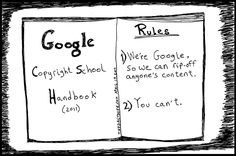 Google
Copyright School
Handbook
(2011)
Rules
1) We're Google,
so we can rip-off
anyone's content.
2) You can't.